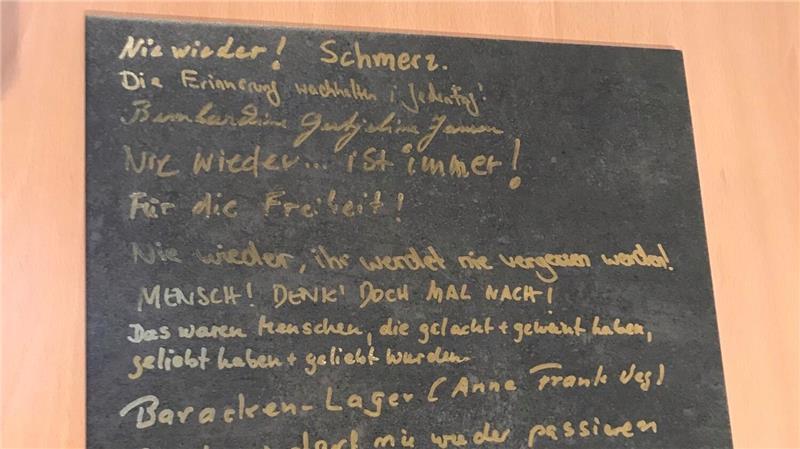 Nie wieder! Schmerz.
Die Erinnerung wachhalten, jeden Tag!
Nie wieder... ist immer!
Für die Freiheit!
Nie wieder, ihr werdet nie vergessen werden!
MENSCH! DENK' DOCH MAL NACH!
Das waren Menschen, die gelacht + geweint haben,
geliebt haben + geliebt wurden.
Baracken-Lager (Anne Frank Weg)
darf nie wieder passieren